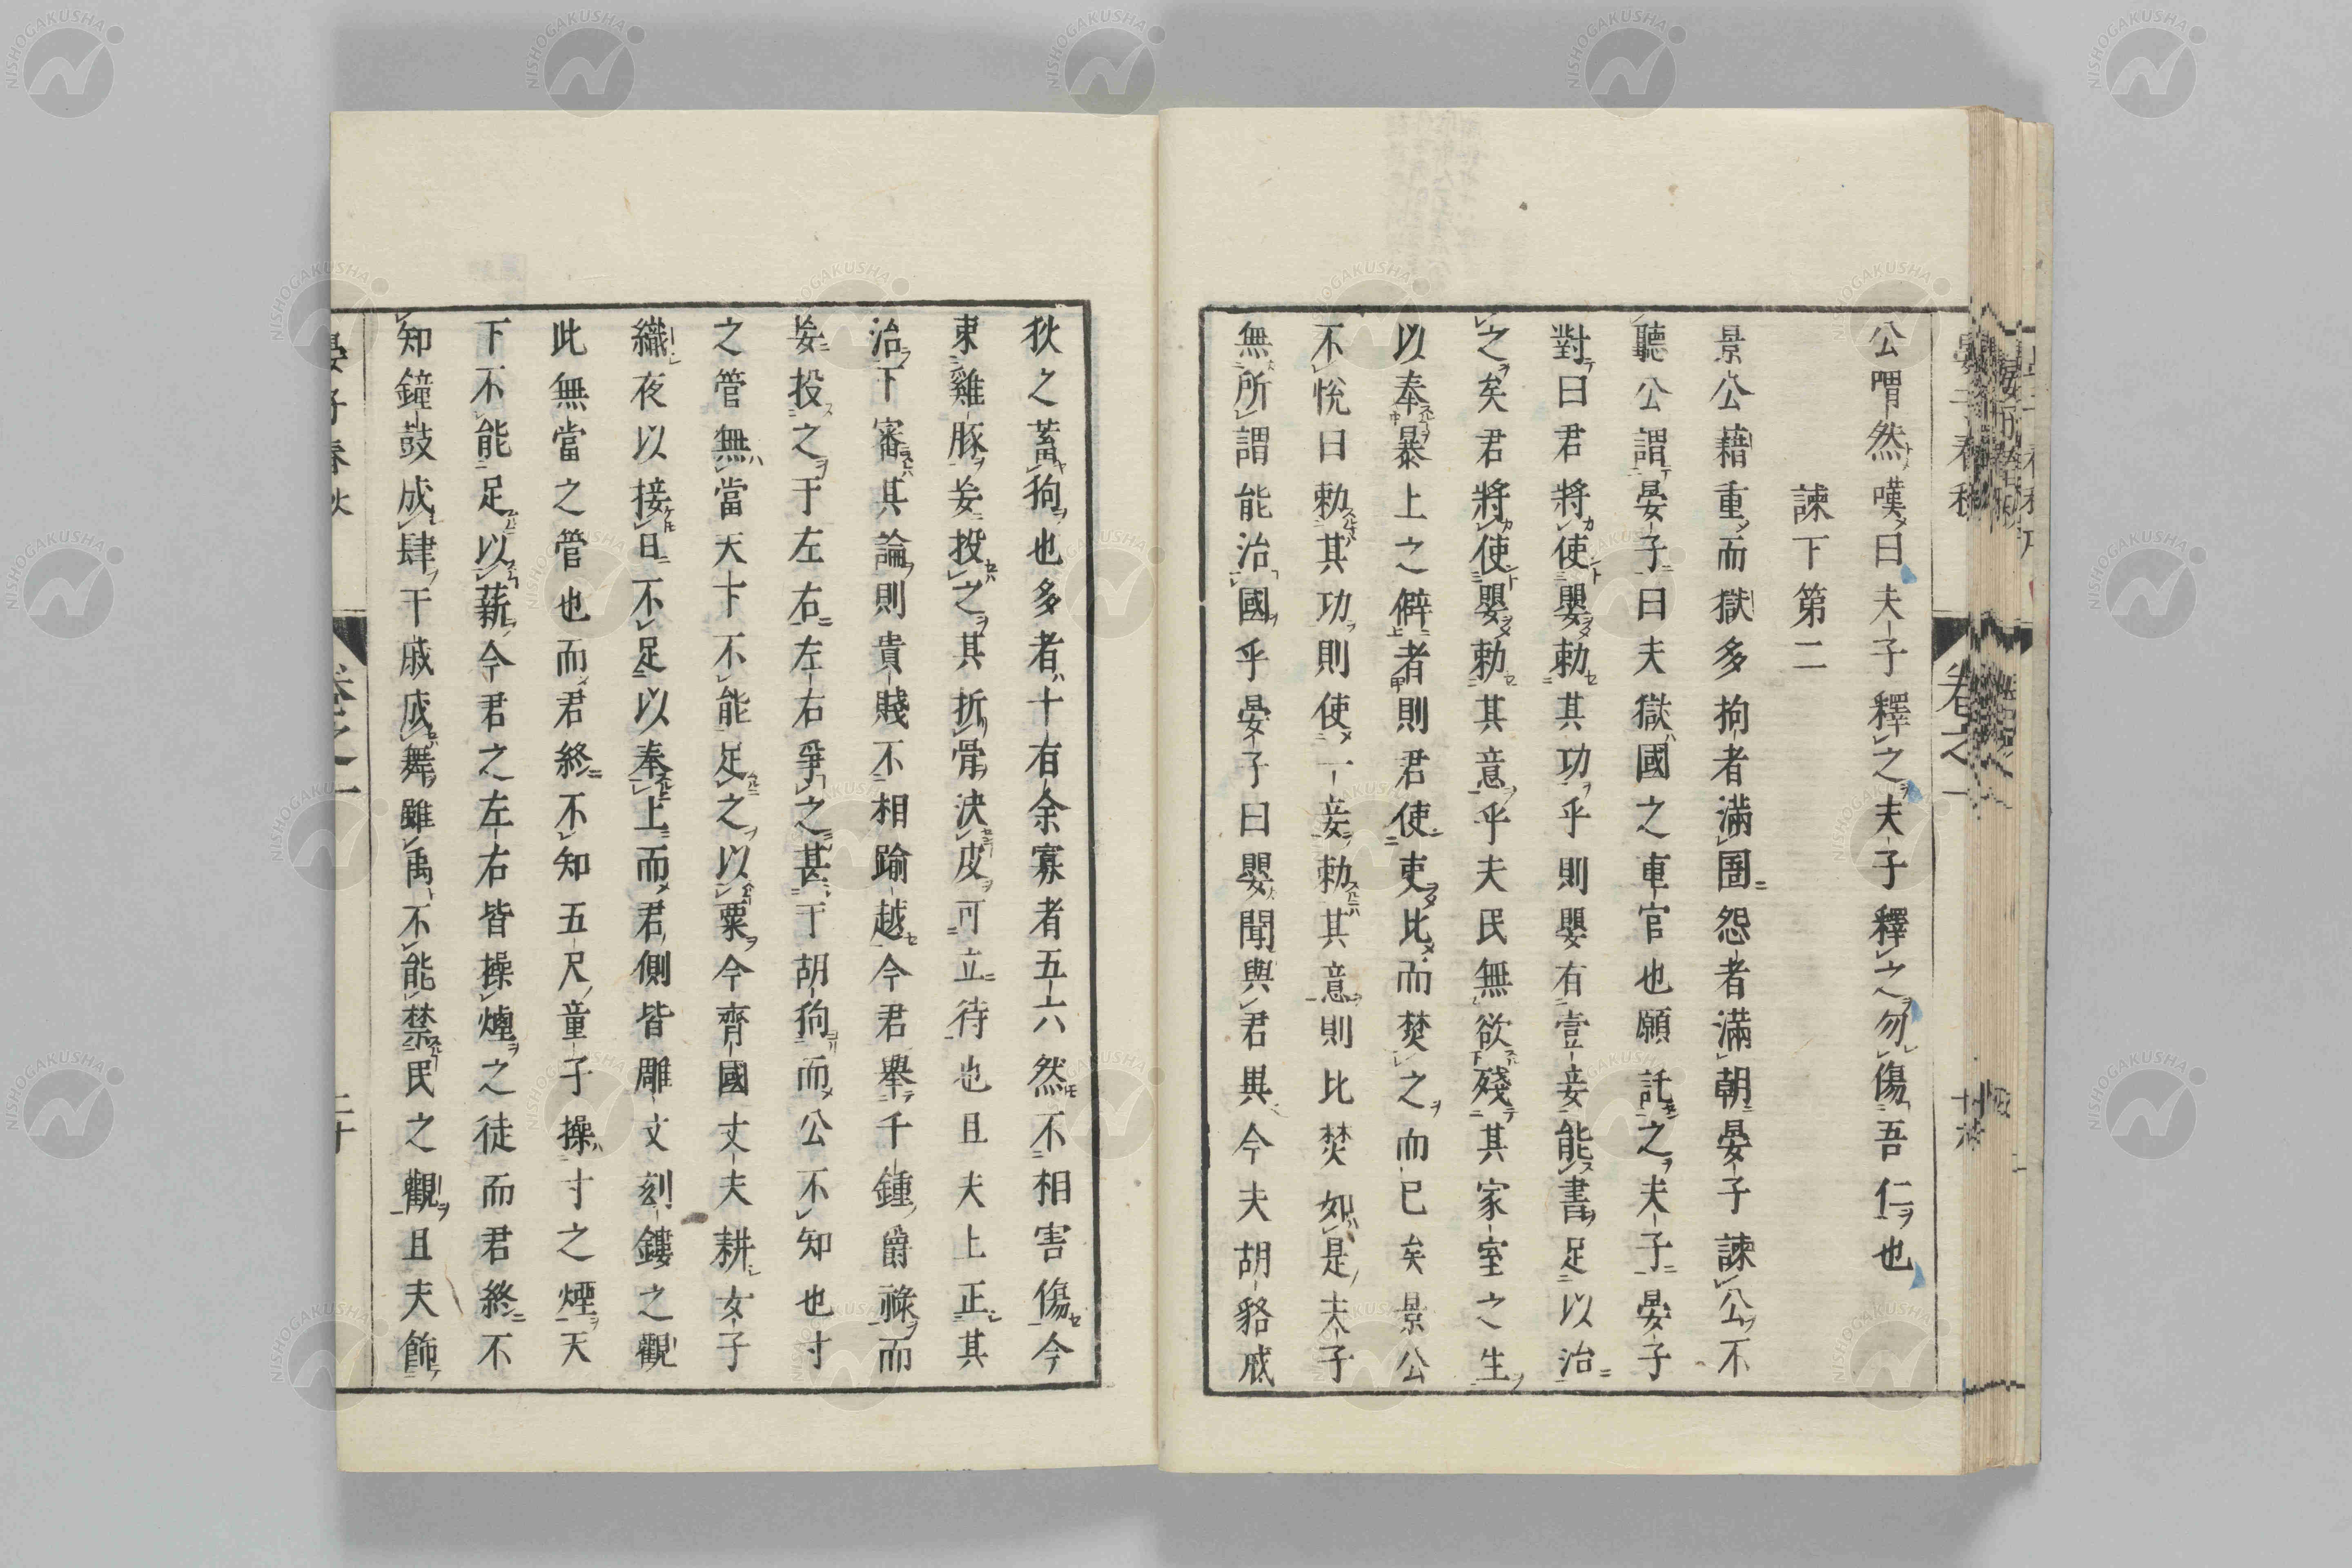 公喟然嘆曰夫子釋之夫子釋之勿傷吾仁也
諫下第二
景公藉重而獄多拘者滿圄怨者滿朝晏子諫公不
聽公謂晏子曰夫獄國之重官也願託之夫子晏子
對曰君將使嬰勑其功乎則嬰有壹妾能書足以治
之矣君將使嬰勑其意乎夫民無欲殘其家室之生
以奉暴上之僻者則君使吏比而焚之而已矣景公
不悅曰勑其功則使一妾勑其意則比焚如是夫子
無所謂能治國乎晏子曰嬰聞與君異今夫胡貉戎
狄之蓄狗也多者十有余寡者五六然不相害傷今
束雞豚妄投之其折骨決皮可立待也且夫上正其
治下審其論則貴賤不相踰越今君舉千鍾爵祿而
妄投之于左右左右爭之甚于胡狗而公不知也寸
之管無當天下不能足之以粟今齊國丈夫耕女子
織夜以接日不足以奉上而君側皆雕文刻鏤之觀
此無當之管也而君終不知五尺童子操寸之煙天
下不能足以薪今君之左右皆操煙之徒而君終不
知鐘鼓成肆干戚成舞雖禹不能禁民之觀且夫飾
晏子春秋
卷之一
二十
NISHOGAKUSHA